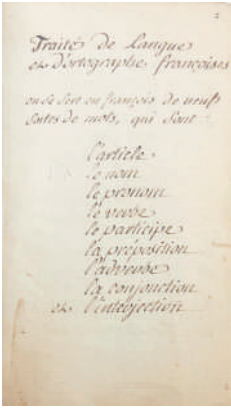 2
Traité de Langue
et D'ortographe françoises
on se sert en françois de neuf
sortes de mots, qui sont
l'article
le nom
le pronom
le verbe
le participe
la préposition
l'adverbe
la conjonction
et l'interjection